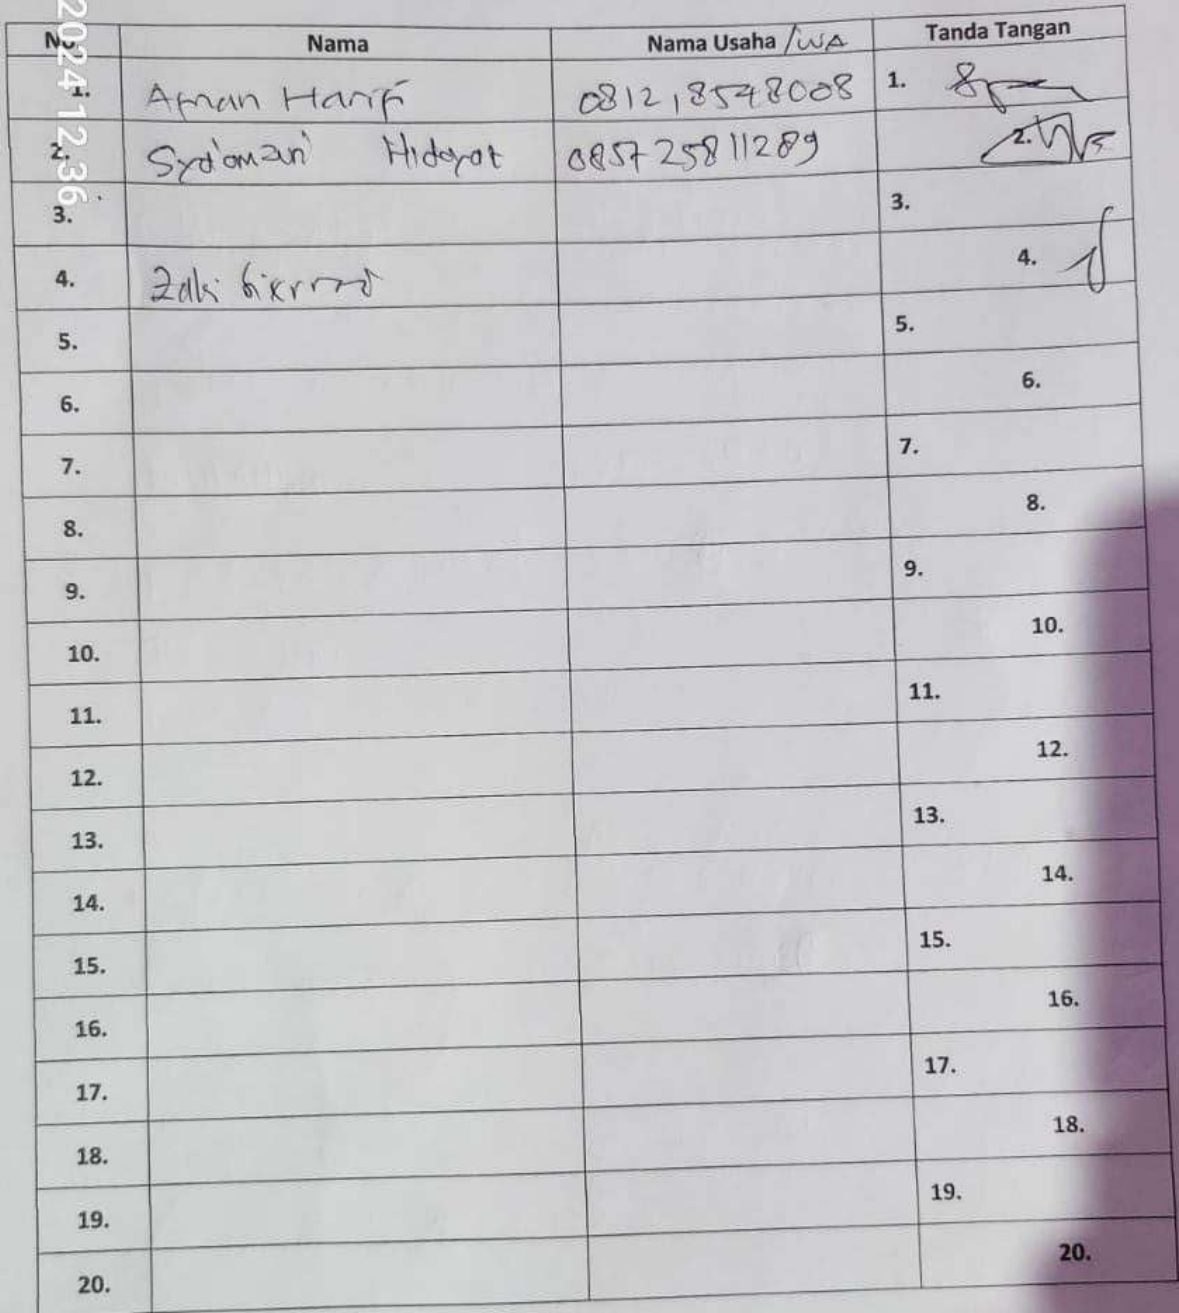 2024 12:36
No. Nama Nama Usaha /WA Tanda Tangan
1. Aman Hanif 081218548008 1.
2. Hidayat 085725811289 2.
3. 3.
4. Zaki 4.
5. 5.
6. 6.
7. 7.
8. 8.
9. 9.
10. 10.
11. 11.
12. 12.
13. 13.
14. 14.
15. 15.
16. 16.
17. 17.
18. 18.
19. 19.
20. 20.